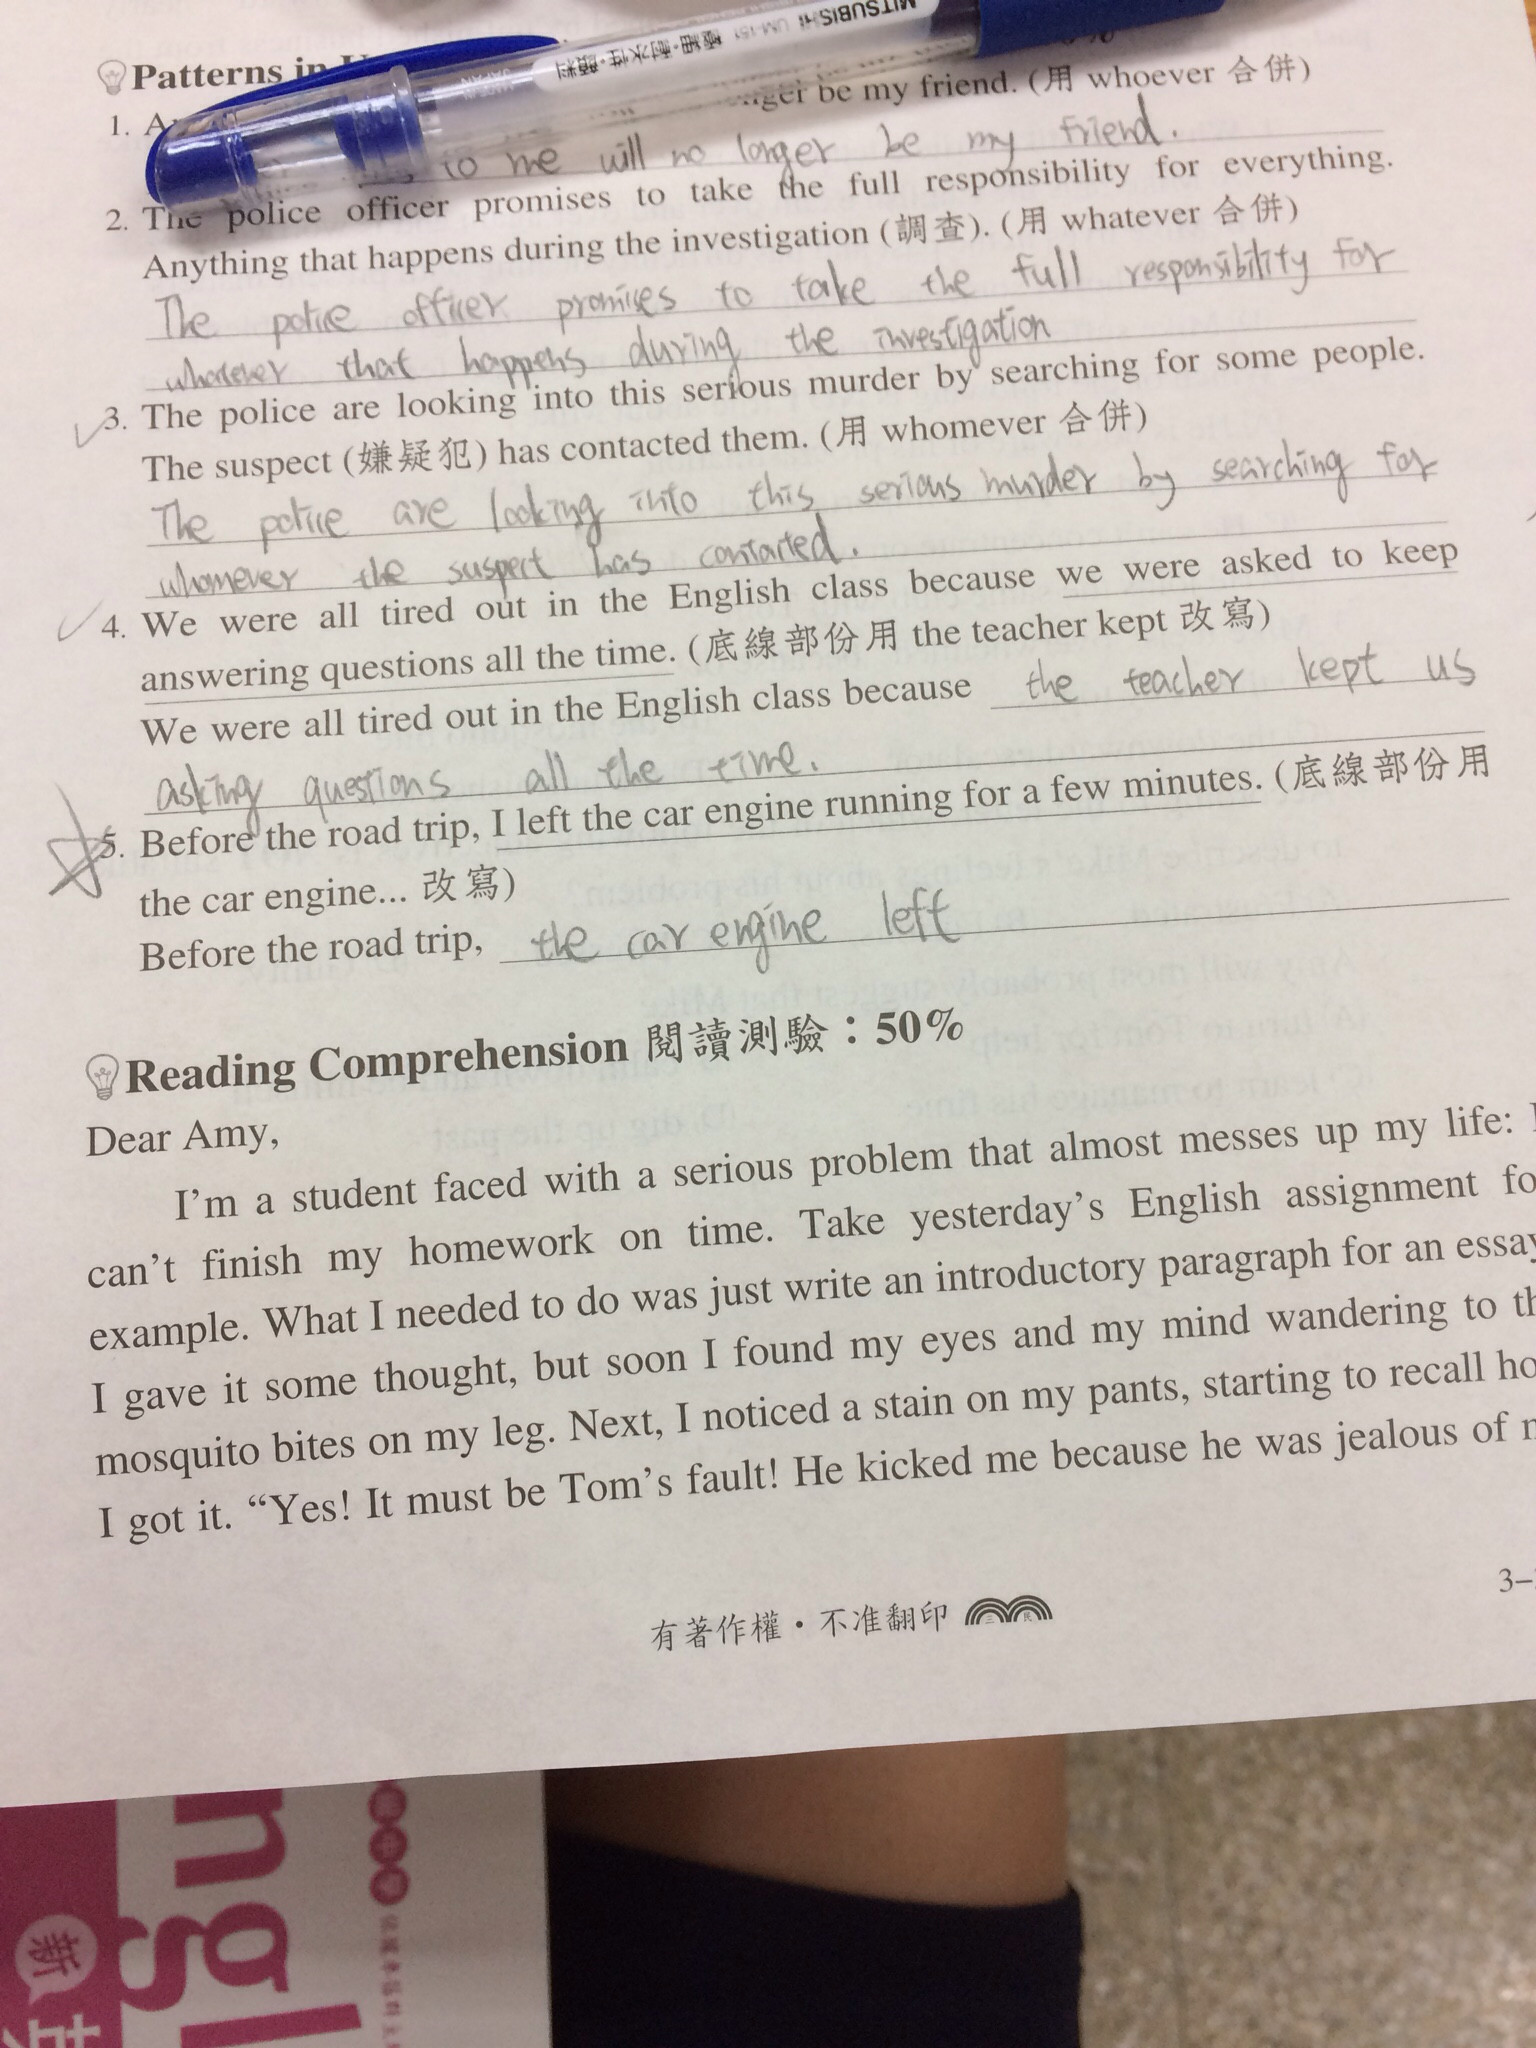 MITSUBISHI UM-151 極細・耐水性・顔料
Patterns in
1. be my friend. (用 whoever 合併)
to me will no longer be my friend.
2. The police officer promises to take the full responsibility for everything.
Anything that happens during the investigation (調查). (用 whatever 合併)
The police officer promises to take the full responsibility for
whatever that happens during the investigation
3. The police are looking into this serious murder by searching for some people.
The suspect (嫌疑犯) has contacted them. (用 whomever 合併)
The police are looking into this serious murder by searching for
whomever the suspect has contacted.
4. We were all tired out in the English class because we were asked to keep
answering questions all the time. (底線部份用 the teacher kept 改寫)
We were all tired out in the English class because the teacher kept us
asking questions all the time.
5. Before the road trip, I left the car engine running for a few minutes. (底線部份用
the car engine... 改寫)
Before the road trip, the car engine left
Reading Comprehension 閱讀測驗：50%
Dear Amy,
I'm a student faced with a serious problem that almost messes up my life: I
can't finish my homework on time. Take yesterday's English assignment fo
example. What I needed to do was just write an introductory paragraph for an essay
I gave it some thought, but soon I found my eyes and my mind wandering to th
mosquito bites on my leg. Next, I noticed a stain on my pants, starting to recall ho
I got it. “Yes! It must be Tom's fault! He kicked me because he was jealous of m
3-
有著作權・不准翻印
三民
ngl
新